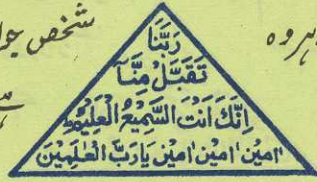 شخص
ہر وہ
رَبَّنَا
تَقَبَّلْ مِنَّا
اِنَّكَ اَنْتَ السَّمِيْعُ الْعَلِيْمُ
اٰمِيْن اٰمِيْن اٰمِيْن يَارَبَّ الْعٰلَمِيْنَ